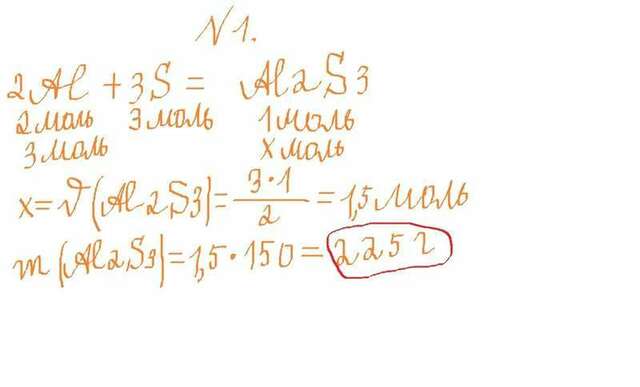 №1.
2Al + 3S = Al2S3
2моль 3моль 1моль
3моль xмоль
x=ν(Al2S3)=3·1/2=1,5моль
m(Al2S3)=1,5·150=225г